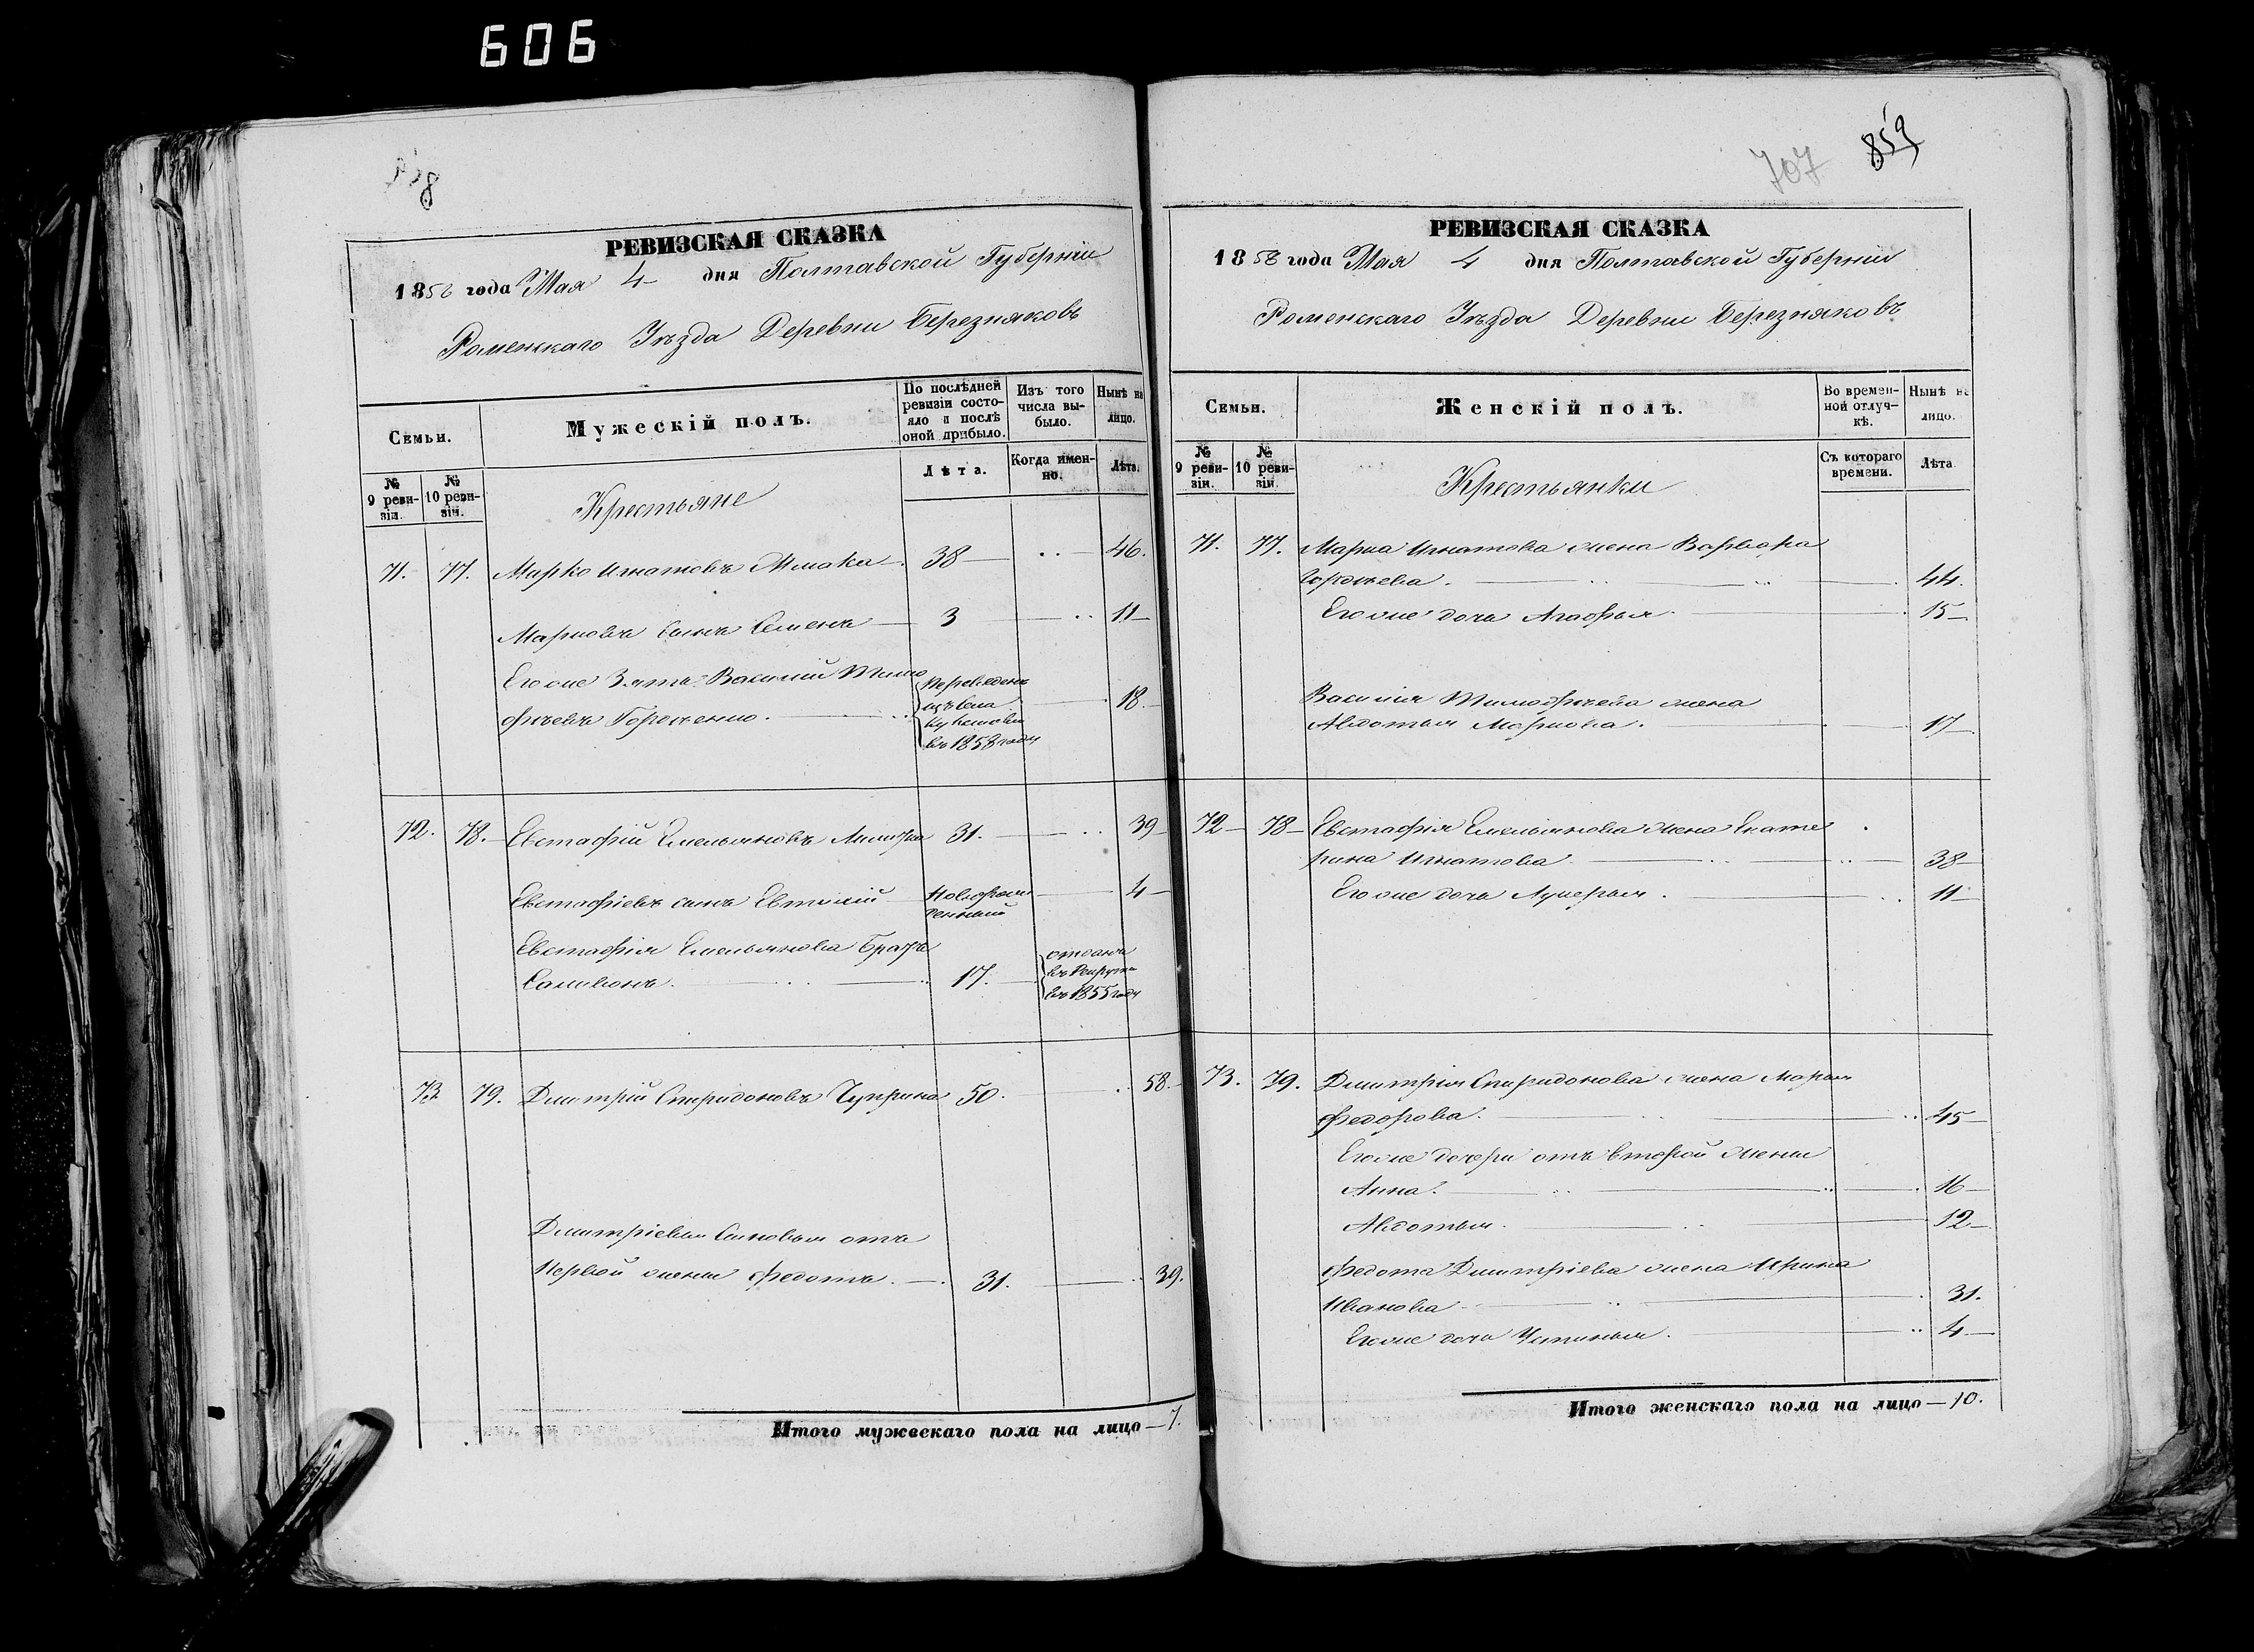 606
858
РЕВИЗСКАЯ СКАЗКА
1858 года Мая 4 дня Полтавской Губерніи
Роменскаго Уѣзда Деревни Березняковъ
Семьи.
Мужескій полъ.
По послѣдней ревизіи состояло и послѣ оной прибыло.
Изъ того числа выбыло.
Нынѣ на лицо.
№ 9 ревизіи.
№ 10 ревизіи.
Крестьяне
Лѣта.
Когда именно.
Лѣта.
71. 77. Марко Игнатовъ 38 46.
Марковъ сынъ Семенъ 3 11
Его же Зять Василій Тимо
фѣевъ 18
Переведенъ
изъ села
въ 1858 году
72. 78. Евстафій Емельяновъ 31. 39
Евстафіевъ сынъ Евтихій Новорож
денный 4
Евстафія Емельянова братъ
17.
отданъ
въ Рекруты
въ 1855 году
73 79. Дмитрій Спиридоновъ Чуприна 50. 58.
Дмитріевы Сыновья отъ
Первой жены Федотъ 31. 39.
Итого мужескаго пола на лицо 7.
707
859
РЕВИЗСКАЯ СКАЗКА
1858 года Мая 4 дня Полтавской Губерніи
Роменскаго Уѣзда Деревни Березняковъ
Семьи.
Женскій полъ.
Во временной отлучкѣ.
Нынѣ на лицо.
№ 9 ревизіи.
№ 10 ревизіи.
Крестьянки
Съ котораго времени.
Лѣта
71. 77. Марка Игнатова жена Варвара
44.
Его же дочь Агафья 15
Василія Тимофѣева жена
Авдотья Маркова. 17
72 78 Евстафія Емельянова жена Екате
рина Игнатова 38
Его же дочь Лукерья 11
73. 79. Дмитрія Спиридонова жена Марья
Федорова. 45
Его же дочери отъ второй жены
Анна. 16
Авдотья. 12
Федота Дмитріева жена Ирина
Иванова 31.
Его же дочь Устинья. 4
Итого женскаго пола на лицо 10.